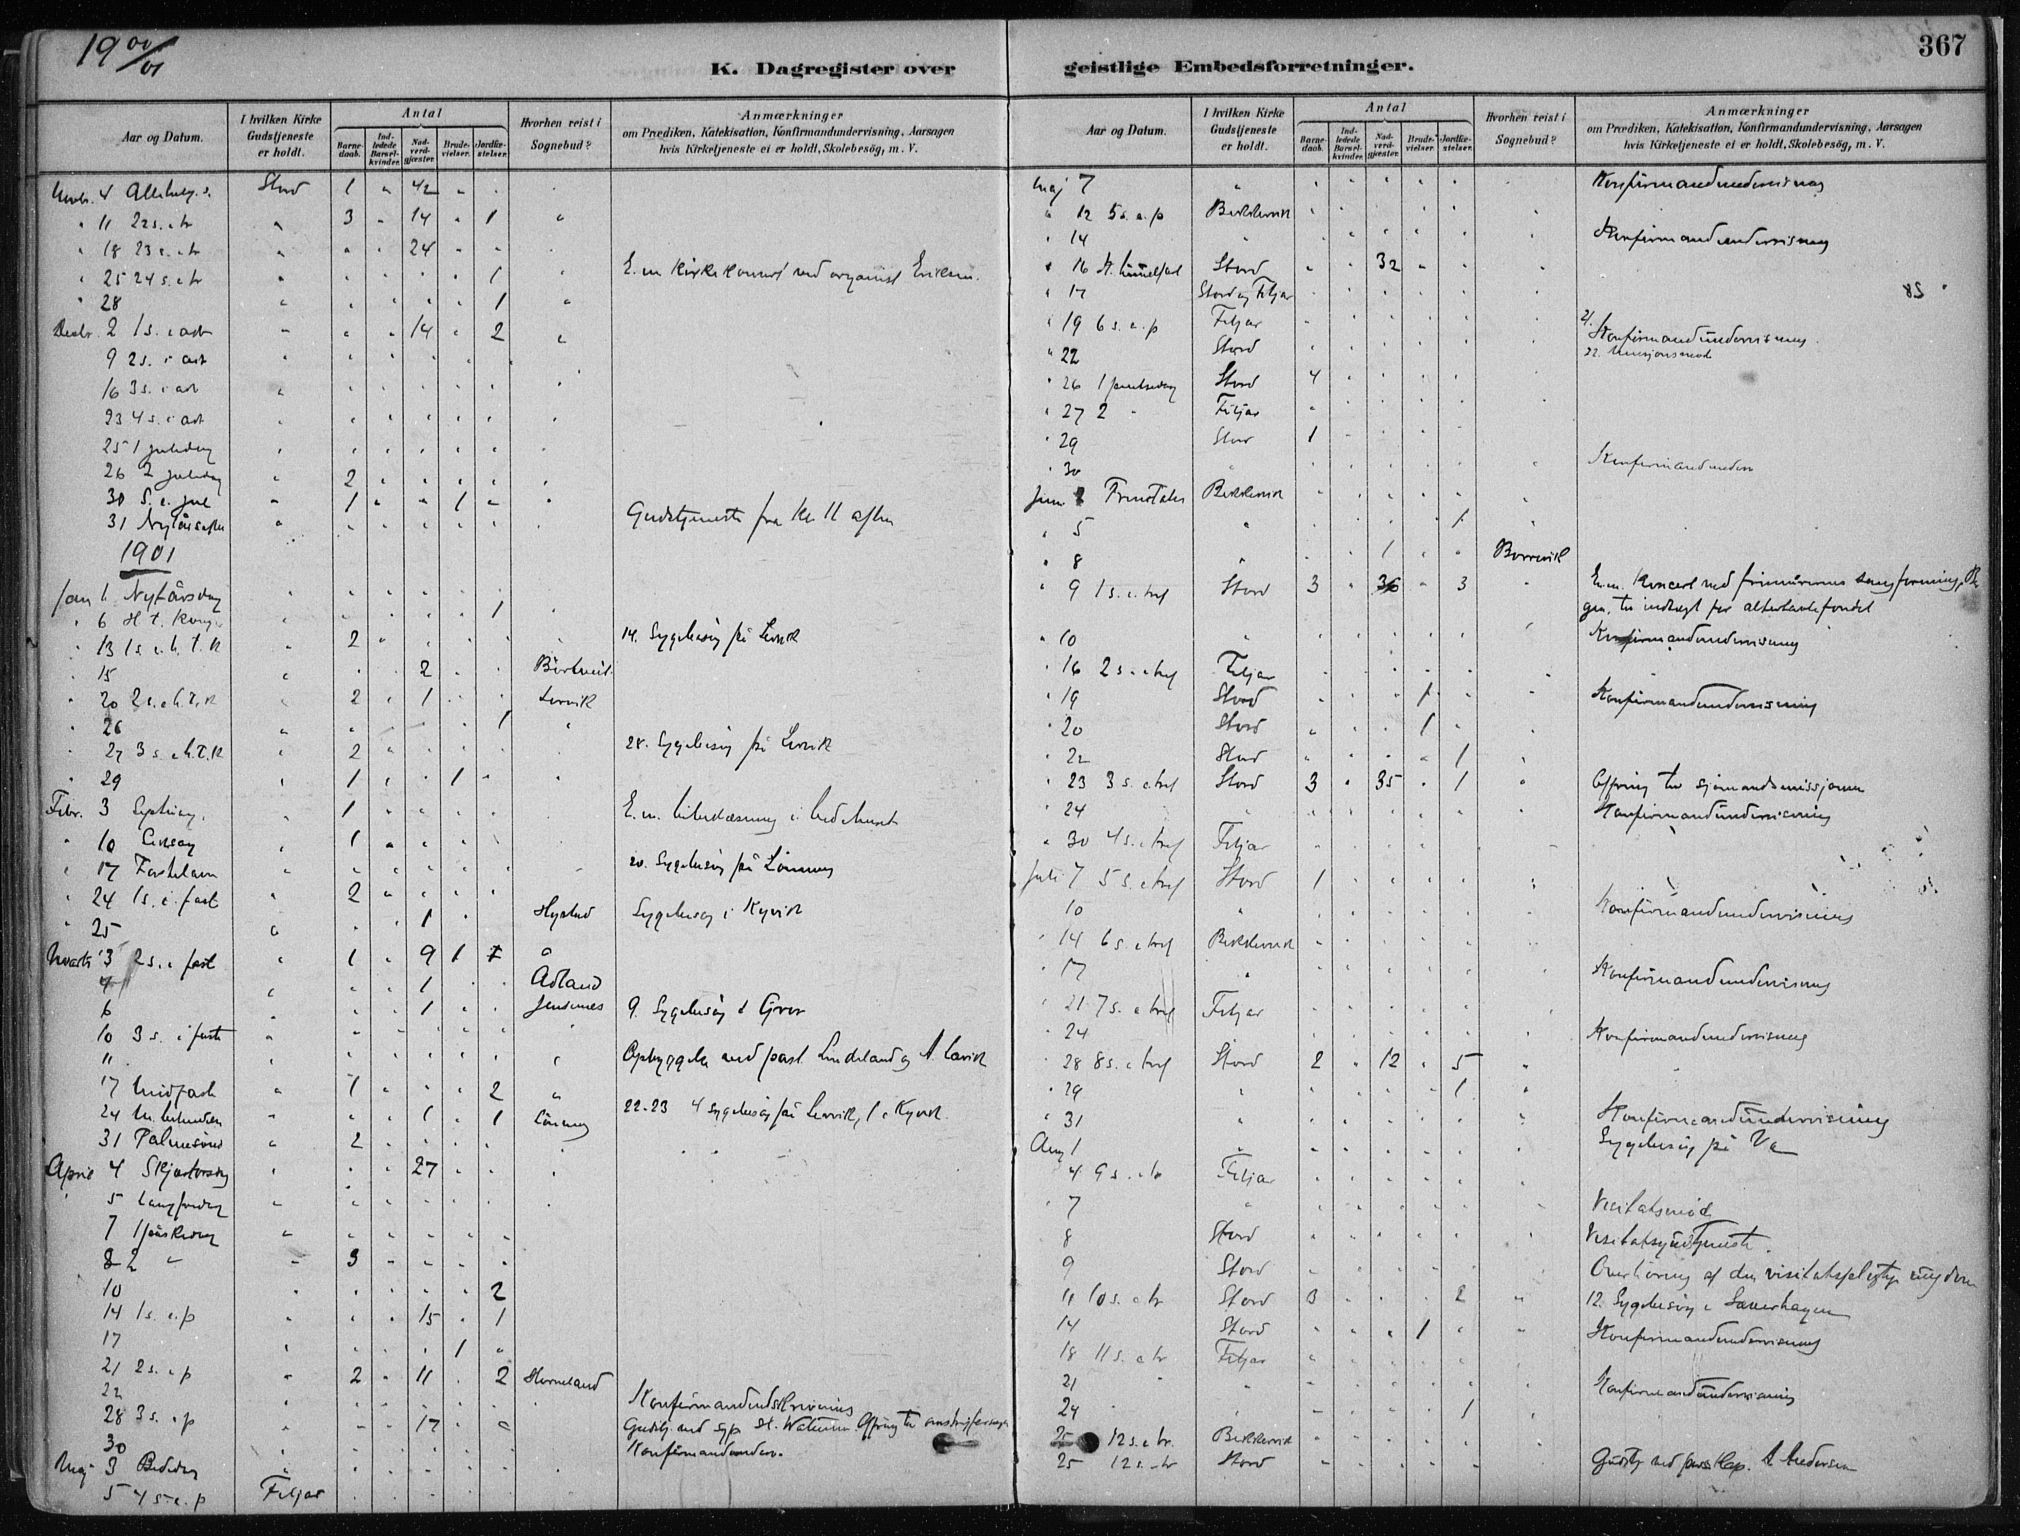 19 00/01
K. Dagregister over geistlige Embedsforretninger.
367
Aar og Datum.
I hvilken Kirke Gudstjeneste er holdt.
Antal
Barne-daab.
Ind-ledede Barsel-kvinder.
Nad-verd-gjæster.
Brude-vielser.
Jordfæ-stelser.
Hvorhen reist i Sognebud?
Anmærkninger
om Prædiken, Katekisation, Konfirmandundervisning, Aarsagen
hvis Kirketjeneste ei er holdt, Skolebesög, m. V.
Stord 1 " 42 "
" 11 22 s. e. tr " 3 " 14 " 1
" 18 23 s. e. tr " " " 24
" 25 24 s. e. tr 1 E.m. kirkekoncert ved organist
" 28 1
2 1 s. i adv 14 " 2
9 2 s. i adv
16 3 s. i adv
23 4 s. i adv
25 1 juledag
26 2 juledag 2
30 S. e. jul 1 " " 1
31 Nytårsaften Gudstjeneste fra kl. 11 aften
1901
Jan 1. Nytårsdag
" 6 H. t. kong. 1
" 13 1 s. e. h. t. k 2 14. Sygebesøg på Lervik
" 15 2
" 20 2 s. e. h. t. k 2 " 1 Lervik
" 26 1
" 27 3 s. e. h. t. k 2 28. Sygebesøg på Lervik
" 29 1 " " 1
Febr. 3 1 E.m. bibellæsning i bedehuset
" 10 1
" 17 Fastelavn 20. Sygebesøg på
" 24 1 s. i fast 2
" 25 1 Hystad Sygebesøg i Kyvik
Marts 3 2 s. i fast 1 " 9 1
4 1 Adland
6 1 Jensanes 9. Sygebesøg i
10 3 s. i faste
11 Opbyggelse ved past. Lindeland og
17 Midfaste 1 2
24 1 1 22-23 4 sygebesøg på Lervik, 1 i Kyvik.
31 Palmesøndag 2
April 4 Skjærtorsdag 27
5 Langfredag
7 1 påskedag
8 2 " 3
10 2
14 1 s. e. p 15 " 1
17 1
21 2 s. e. p 2 " 11 " 2 Horneland
22 Konfirmandindskrivning
28 3 s. e. p 17
30 Konfirmandunderv.
Maj 3 Bededag
5 4 s. e. p Fitjar
Aar og Datum.
I hvilken Kirke Gudstjeneste er holdt.
Antal
Barne-daab.
Ind-ledede Barsel-kvinder.
Nad-verd-gjæster.
Brude-vielser.
Jordfæ-stelser.
Hvorhen reist i Sognebud?
Anmærkninger
om Prædiken, Katekisation, Konfirmandundervisning, Aarsagen
hvis Kirketjeneste ei er holdt, Skolebesög, m. V.
Maj 7 Konfirmandundervisning
" 12 5 s. e. p
" 14 Konfirmandundervisning
" 16 Stord " " 32
" 17 Stord og Fitjar
" 19 6 s. e. p Fitjar 21. Konfirmandundervisning
" 22 Stord 22. Missjonsmøde
" 26 1 pinsedag Stord 4
" 27 2 " Fitjar
" 29 Stord 1
" 30 Konfirmandunderv
Juni 2 Trinitatis
" 5 1
" 8 1
" 9 1 s. e. tref Stord 3 " 36 " 3
til indtægt for altertavlefondet
" 10 Konfirmandundervisning
" 16 2 s. e. tref Fitjar
" 19 Stord 1 Konfirmandundervisning
" 20 Stord 1
" 22 Stord 1
" 23 3 s. e. tref Stord 3 " 35 " 1 Offring til sjømandsmissjonen
" 24 Konfirmandundervisning
" 30 4 s. e. tref Fitjar
Juli 7 5 s. e. tref Stord 1
10 Konfirmandundervisning
" 14 6 s. e. tref
" 17 Konfirmandundervisning
" 21 7 s. e. tref Fitjar
" 24 Konfirmandundervisning
" 28 8 s. e. tref Stord 2 " 12 " 5
" 29 1
" 31 Konfirmandundervisning
Aug 1 Sygebesøg på
" 4 9 s. e. tr Fitjar
" 7 Visitatsmøde
8 Stord Visitatsgudstjeneste.
9 Stord Overhøring af den visitatspligtige ungdom
11 10 s. e. tr Stord 3 2 12. Sygebesøg i
14 Stord 1 Konfirmandundervisning
18 11 s. e. tr Fitjar
21 Konfirmandundervisning
24 1
25 12 s. e. tr.
25 12 s. e. tr Stord